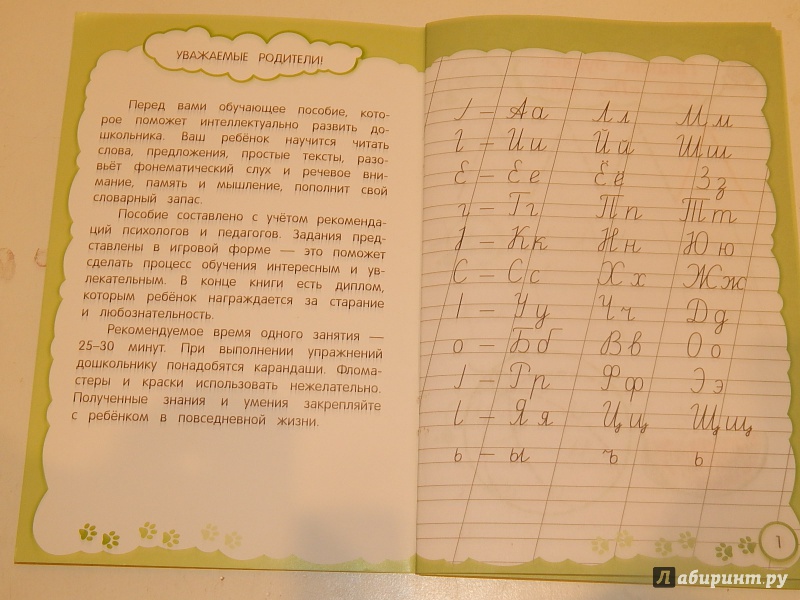 УВАЖАЕМЫЕ РОДИТЕЛИ!
Перед вами обучающее пособие, кото-
рое поможет интеллектуально развить до-
школьника. Ваш ребёнок научится читать
слова, предложения, простые тексты, разо-
вьёт фонематический слух и речевое вни-
мание, память и мышление, пополнит свой
словарный запас.
Пособие составлено с учётом рекоменда-
ций психологов и педагогов. Задания пред-
ставлены в игровой форме — это поможет
сделать процесс обучения интересным и ув-
лекательным. В конце книги есть диплом,
которым ребёнок награждается за старание
и любознательность.
Рекомендуемое время одного занятия —
25–30 минут. При выполнении упражнений
дошкольнику понадобятся карандаши. Флома-
стеры и краски использовать нежелательно.
Полученные знания и умения закрепляйте
с ребёнком в повседневной жизни.
— Аа Лл Мм
— Ии Йй Шш
Е — Ее Ёё Зз
г — Гг Пп Тт
— Кк Нн Юю
С — Сс Хх Жж
— Уу Чч Дд
о — Бб Вв Оо
— Рр Фф Ээ
— Яя Цц Щщ
ь — ы ъ ь
1
Лабиринт.ру